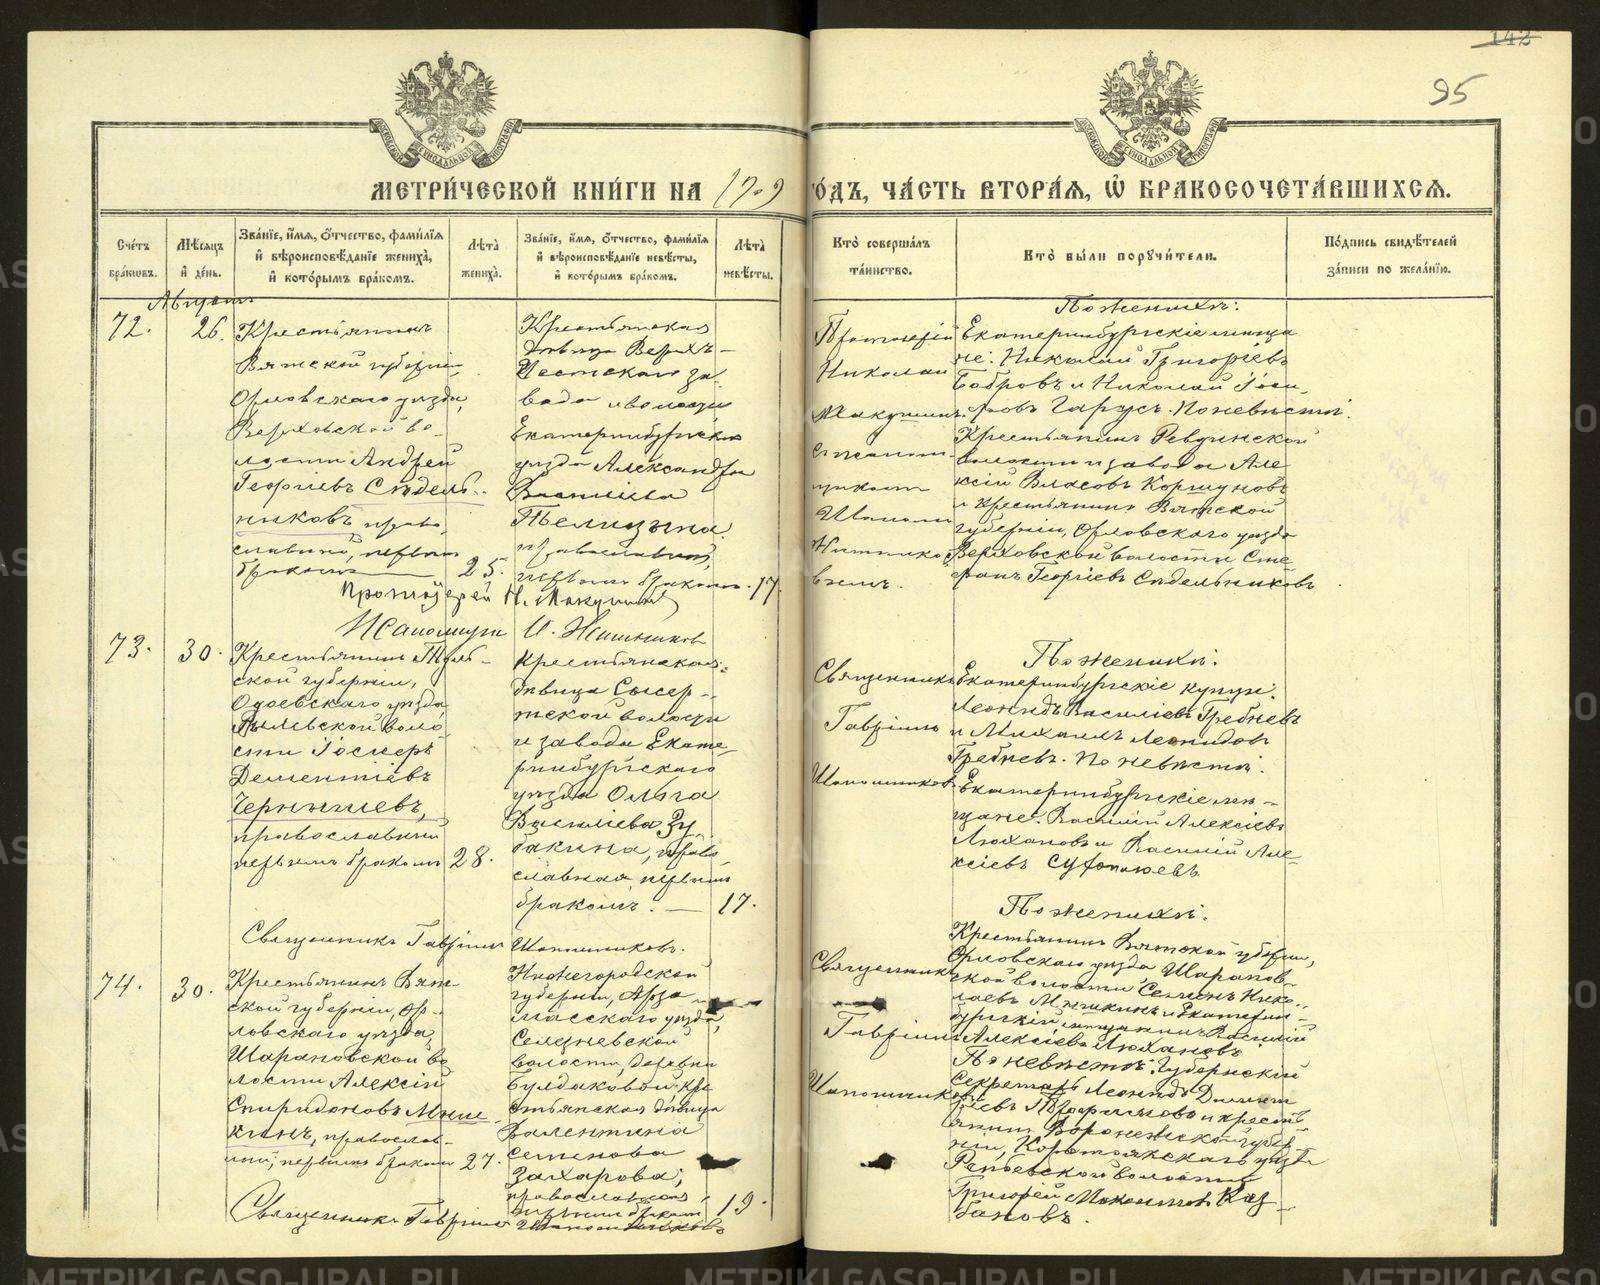 142
95
МЕТРИ́ЧЕСКОЙ КНИ́ГИ НА 1909 ГО́ДЪ, ЧА́СТЬ ВТОРА́Я, Ѡ҆ БРАКОСОЧЕТА́ВШИХСЯ.
Сче́тъ бра́кѡвъ.
Мѣ́сяцъ и҆ де́нь.
Зва́нїе, и҆́мя, ѻ҆́тчество, фами́лїя и҆ вѣроисповѣ́данїе жениха̀, и҆ кото́рымъ бра́комъ.
Лѣта̀ жениха̀.
Зва́нїе, и҆́мя, ѻ҆́тчество, фами́лїя и҆ вѣроисповѣ́данїе невѣ́сты, и҆ кото́рымъ бра́комъ.
Лѣта̀ невѣ́сты.
Кто̀ соверша́лъ та́инство.
Кто̀ бы́ли порꙋчи́тели.
По́дпись свидѣ́телей за́писи по жела́нїю.
Августъ
72.
26.
Крестьянинъ
Вятской губерніи,
Орловскаго уѣзда,
Верховской во-
лости Андрей
Георгіевъ Сѣдель-
никовъ, право-
славный, первымъ
бракомъ
25.
Крестьянская
дѣвица Верхъ-
Исетскаго за-
вода и волости
Екатеринбургскаго
уѣзда Александра
Васильева
православная,
первымъ бракомъ.
17.
Протоіерей
Николай
Макушинъ
съ псалом-
щикомъ
Иваномъ
Житнико-
вымъ.
По женихѣ:
Екатеринбургскіе мѣща
не: Николай Григорьевъ
Бобровъ и Николай Іоси
фовъ Гарусъ. По невѣстѣ:
Крестьянинъ Ревдинской
волости и завода Але
ксѣй Власовъ Коршуновъ
и крестьянинъ Вятской
губерніи, Орловскаго уѣзда
Верховской волости Сте-
фанъ Георгіевъ Сѣдельниковъ
Протоіерей Н. Макушинъ
Псаломщикъ И. Житниковъ
73.
30.
Крестьянинъ Туль-
ской губерніи,
Одоевскаго уѣзда
волo-
сти
Дементіевъ
Чернышевъ,
православный
первымъ бракомъ
28.
Крестьянская
дѣвица Сысер-
тской волости
и завода Екате-
ринбургскаго
уѣзда Ольга
Васильева Зу
бакина, право-
славная, первымъ
бракомъ.
17.
Священникъ
Гавріилъ
Шапошниковъ.
По женихѣ:
Екатеринбургскіе купцы:
Леонидъ Васильевъ Гребневъ
и Михаилъ Леонидовъ
Гребневъ. По невѣстѣ:
Екатеринбургскіе мѣ-
щане: Василій Алексѣевъ
Люхановъ и Василій Але-
ксѣевъ
Священникъ Гавріилъ Шапошниковъ.
74.
30.
Крестьянинъ Вят-
ской губерніи, Ор-
ловскаго уѣзда,
Шарановской во
лости Алексѣй
Спиридоновъ Мыш-
кинъ, православ-
ный, первымъ бракомъ
27.
Нижегородской
губерніи, Арза-
масскаго уѣзда,
волости, деревни
Булдаковой кре
стьянская дѣвица
Валентина
Семенова
Захарова,
православная,
первымъ бракомъ
19.
Священникъ
Гавріилъ
Шапошниковъ
По женихѣ:
Крестьянинъ Вятской губерніи,
Орловскаго уѣзда Шаранов-
ской волости Семенъ Нико-
лаевъ Мышкинъ и Екатерин-
бургскій мѣщанинъ Василій
Алексѣевъ Люхановъ
По невѣстѣ: Губернскій
Секретарь Леонидъ Димит
ріевъ Трофимовъ и кресть-
янинъ Воронежской губер
ніи, Коротоякскаго уѣзда
волости
Григорій
Священникъ Гавріилъ Шапошниковъ
METRIKI.GASO-URAL.RU